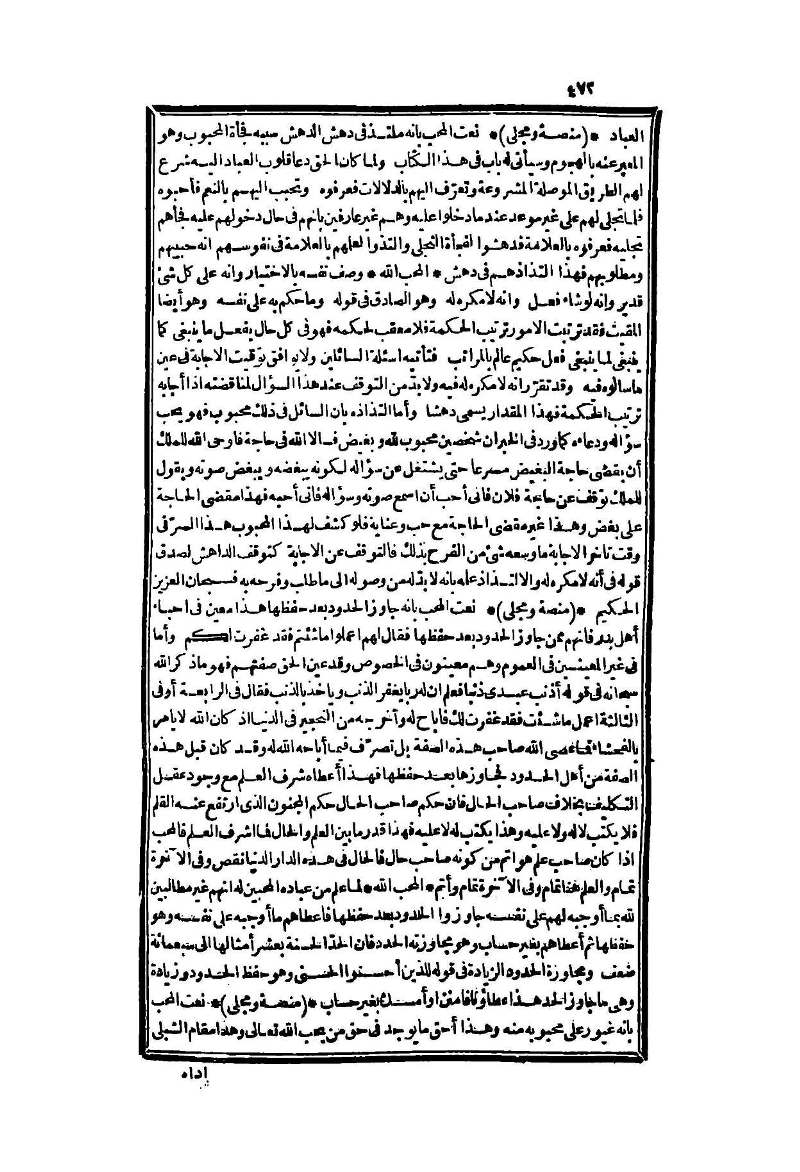 ٤٧٢
العباد * (منصة ومجلى) * نعت المحب بانه ملتذ فى دهش الدهش سببه فجأة المحبوب وهو
المعبر عنه بالهجوم وسيأتى له باب فى هذا الكتاب ولما كان الحق دعا قلوب العباد اليه شرع
لهم الطريق الموصلة المشروعة وتعرف اليهم بالدلالات فعرفوه وتحبب اليهم بالنعم فأحبوه
فلما تجلى لهم على غير موعد عند ما دخلوا عليه وهم غير عارفين بانهم فى حال دخولهم عليه فجأهم
تجليه فعرفوه بالعلامة فدهشوا لفجأة التجلى والتذوا لعلمهم بالعلامة فى نفوسهم انه حبيبهم
ومطلوبهم فهذا التذاذهم فى دهش * المحب الله * وصف نفسه بالاختيار وانه على كل شئ
قدير وانه لو شاء فعل وانه لا مكره له وهو الصادق فى قوله وما حكم به على نفسه وهو أيضا
المقيت فقد ترتبت الامور ترتيب الحكمة فلا معقب لحكمه فهو فى كل حال يفعل ما ينبغى كما
ينبغى لما ينبغى فعل حكيم عالم بالمراتب فتأتيه اسئلة السائلين ولا يوافق توقيت الاجابة فى عين
ما سألوه فيه وقد تقرر انه لا مكره له فيه ولا بد من التوقف عند هذا السؤال لمناقضته اذا أجابه
ترتيب الحكمة فهذا المقدار يسمى دهشا وأما التذاذه بان السائل فى ذلك محبوب فهو يحب
سؤاله ودعاءه كما ورد فى الخبر ان شخصين محبوب لله وبغيض سألا الله فى حاجة فأوحى الله للملك
أن يقضى حاجة البغيض مسرعا حتى يشتغل عن سؤاله لكونه يبغضه ويبغض صوته ويقول
للملك توقف عن حاجة فلان فانى أحب أن اسمع صوته وسؤاله فانى أحبه فهذا مقضى الحاجة
على بغض وهذا غير مقضى الحاجة مع حب وعناية فلو كشف لهذا المحبوب هذا السر فى
وقت تأخر الاجابة ما وسعه شئ من الفرح بذلك فالتوقف عن الاجابة كتوقف الداهش لصدق
قوله فى أنه لا مكره له والالتذاذ علمه بانه لا بد له من وصوله الى ما طلب وفرحه به فسبحان العزيز
الحكيم * (منصة ومجلى) * نعت المحب بانه جاوز الحدود بعد حفظها هذا معين فى احباء
أهل بدر فانهم ممن جاوز الحدود بعد حفظها فقال لهم اعملوا ما شئتم فقد غفرت لكم وأما
فى غير المعينين فى العموم وهم معينون فى الخصوص وقد عين الحق صفتهم فهو ما ذكر الله
سبحانه فى قوله أذنب عبدى ذنبا فعلم ان له ربا يغفر الذنب ويأخذ بالذنب فقال فى الرابعة أو فى
الثالثة اعمل ما شئت فقد غفرت لك فاباح له وأخرجه من التحجير فى الدنيا اذ كان الله لا يأمر
بالفحشاء فما عصى الله صاحب هذه الصفة بل تصرف فيما أباحه الله له وقد كان قبل هذه
الصفة من أهل الحدود فجاوزها بعد حفظها فهذا أعطاه شرف العلم مع وجود عقل
التكليف بخلاف صاحب الحال فان حكم صاحب الحال حكم المجنون الذى ارتفع عنه القلم
فلا يكتب لا له ولا عليه وهذا يكتب له لا عليه فهذا قدر ما بين العلم والحال فما اشرف العلم فالمحب
اذا كان صاحب علم هو اتم من كونه صاحب حال فالحال فى هذه الدار الدنيا نقص وفى الآخرة
تمام والعلم هنا تمام وفى الآخرة تمام وأتم * المحب الله * لما علم من عباده المحبين له انهم غير مطالبين
لله بما أوجبه لهم على نفسه جاوزوا الحدود بعد حفظها فأعطاهم ما أوجبه على نفسه وهو
حفظها ثم أعطاهم بغير حساب وهو مجاوزته الحدد فان الحد الحسنة بعشر أمثالها الى سبعمائة
ضعف ومجاوزة الحدود الزيادة فى قوله للذين أحسنوا الحسنى وهو حفظ الحدود وزيادة
وهى ما جاوز الحد هذا عطاؤنا فامنن أو أمسك بغير حساب * (منصة ومجلى) * نعت المحب
بانه غيور على محبوبه منه وهذا أحق ما يوجد فى حق من يحب الله تعالى وهذا مقام الشبلى
اداه